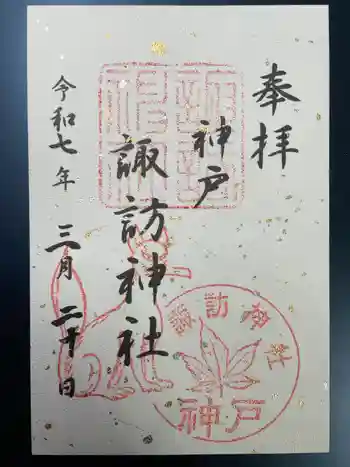 奉拝
神戸
諏訪神社
令和七年
三月二十日
諏訪神社
神戸